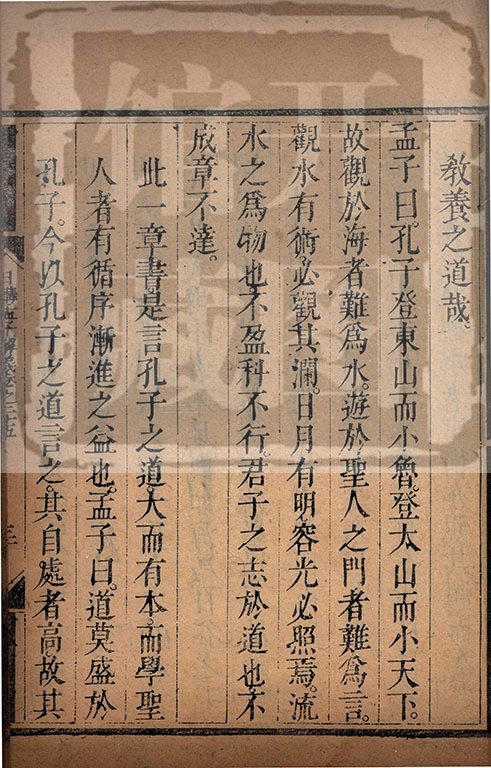 教養之道哉。
孟子曰。孔子登東山而小魯。登太山而小天下。
故觀於海者難爲水。遊於聖人之門者難爲言。
觀水有術。必觀其瀾。日月有明。容光必照焉。流
水之爲物也。不盈科不行。君子之志於道也。不
成章不達。
此一章書是言孔子之道。大而有本。而學聖
人者有循序漸進之益也。孟子曰。道莫盛於
孔子。今以孔子之道言之。其自處者高。故其